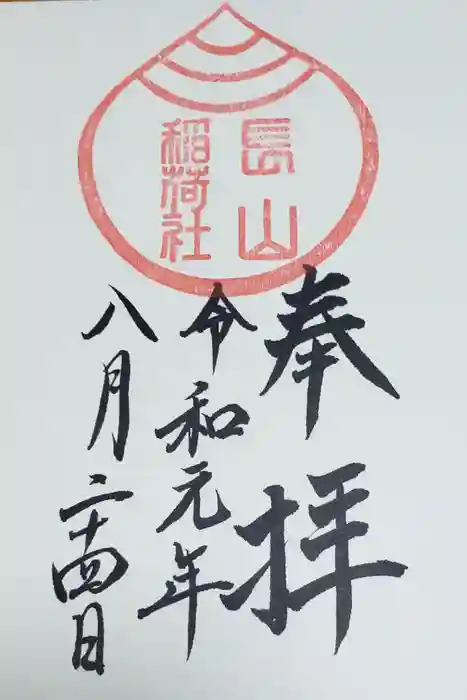 長山
稲荷社
奉拝
令和元年
八月二十四日